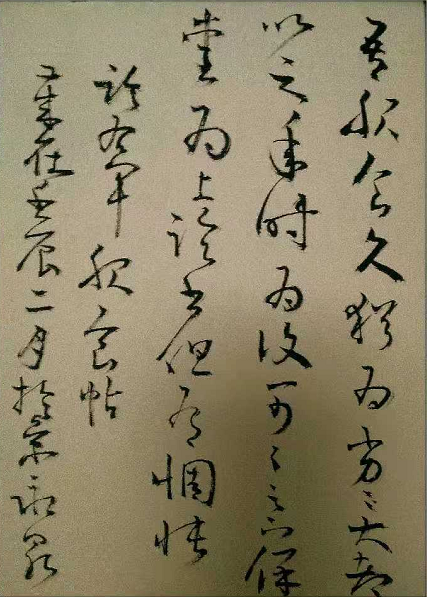 吾服食久猶為劣々大都
比之年時為復可々足下保
愛為上臨書但有惆悵
臨右軍服食帖
歲在壬辰二月於京